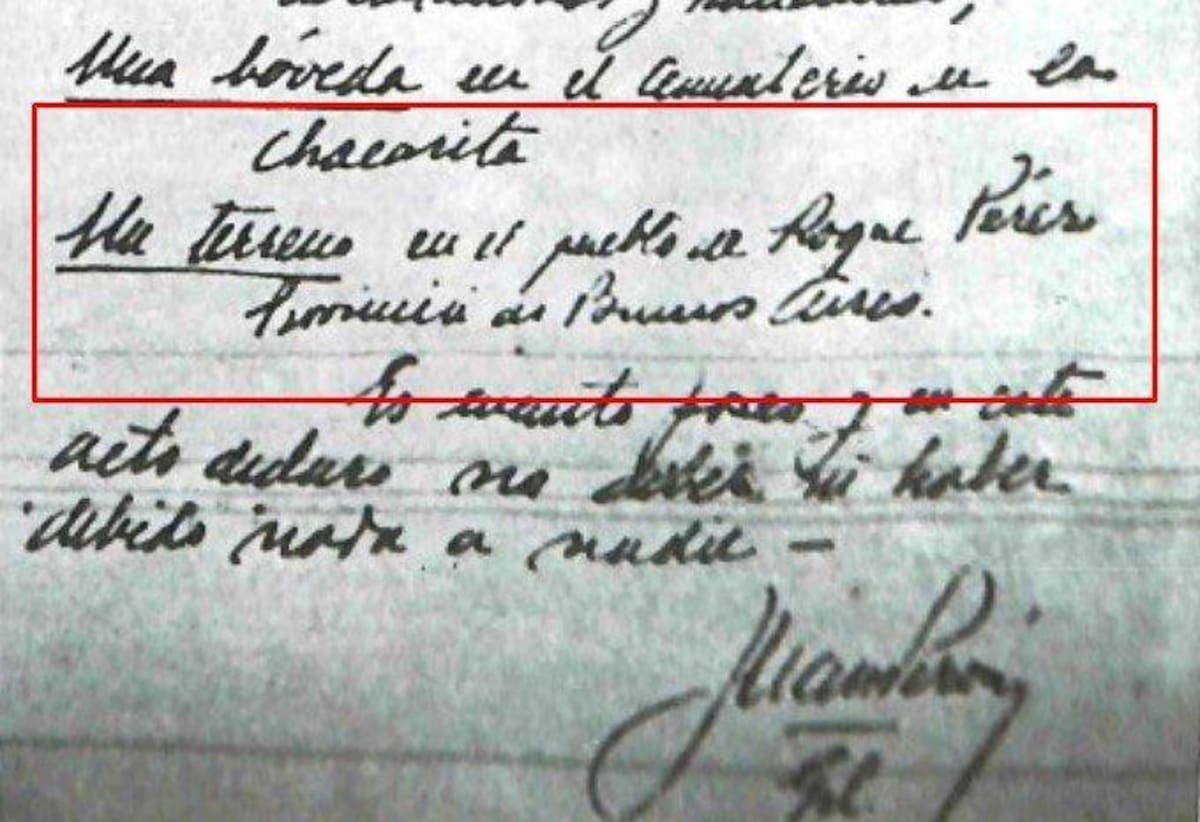 y
Una bóveda en el cementerio de la
Chacarita
Un terreno en el pueblo de Roque Pérez
Provincia de Buenos Aires.
Es cuanto poseo y en este
acto declaro no deber ni haber
debido nada a nadie -
Juan Perón
Gral.